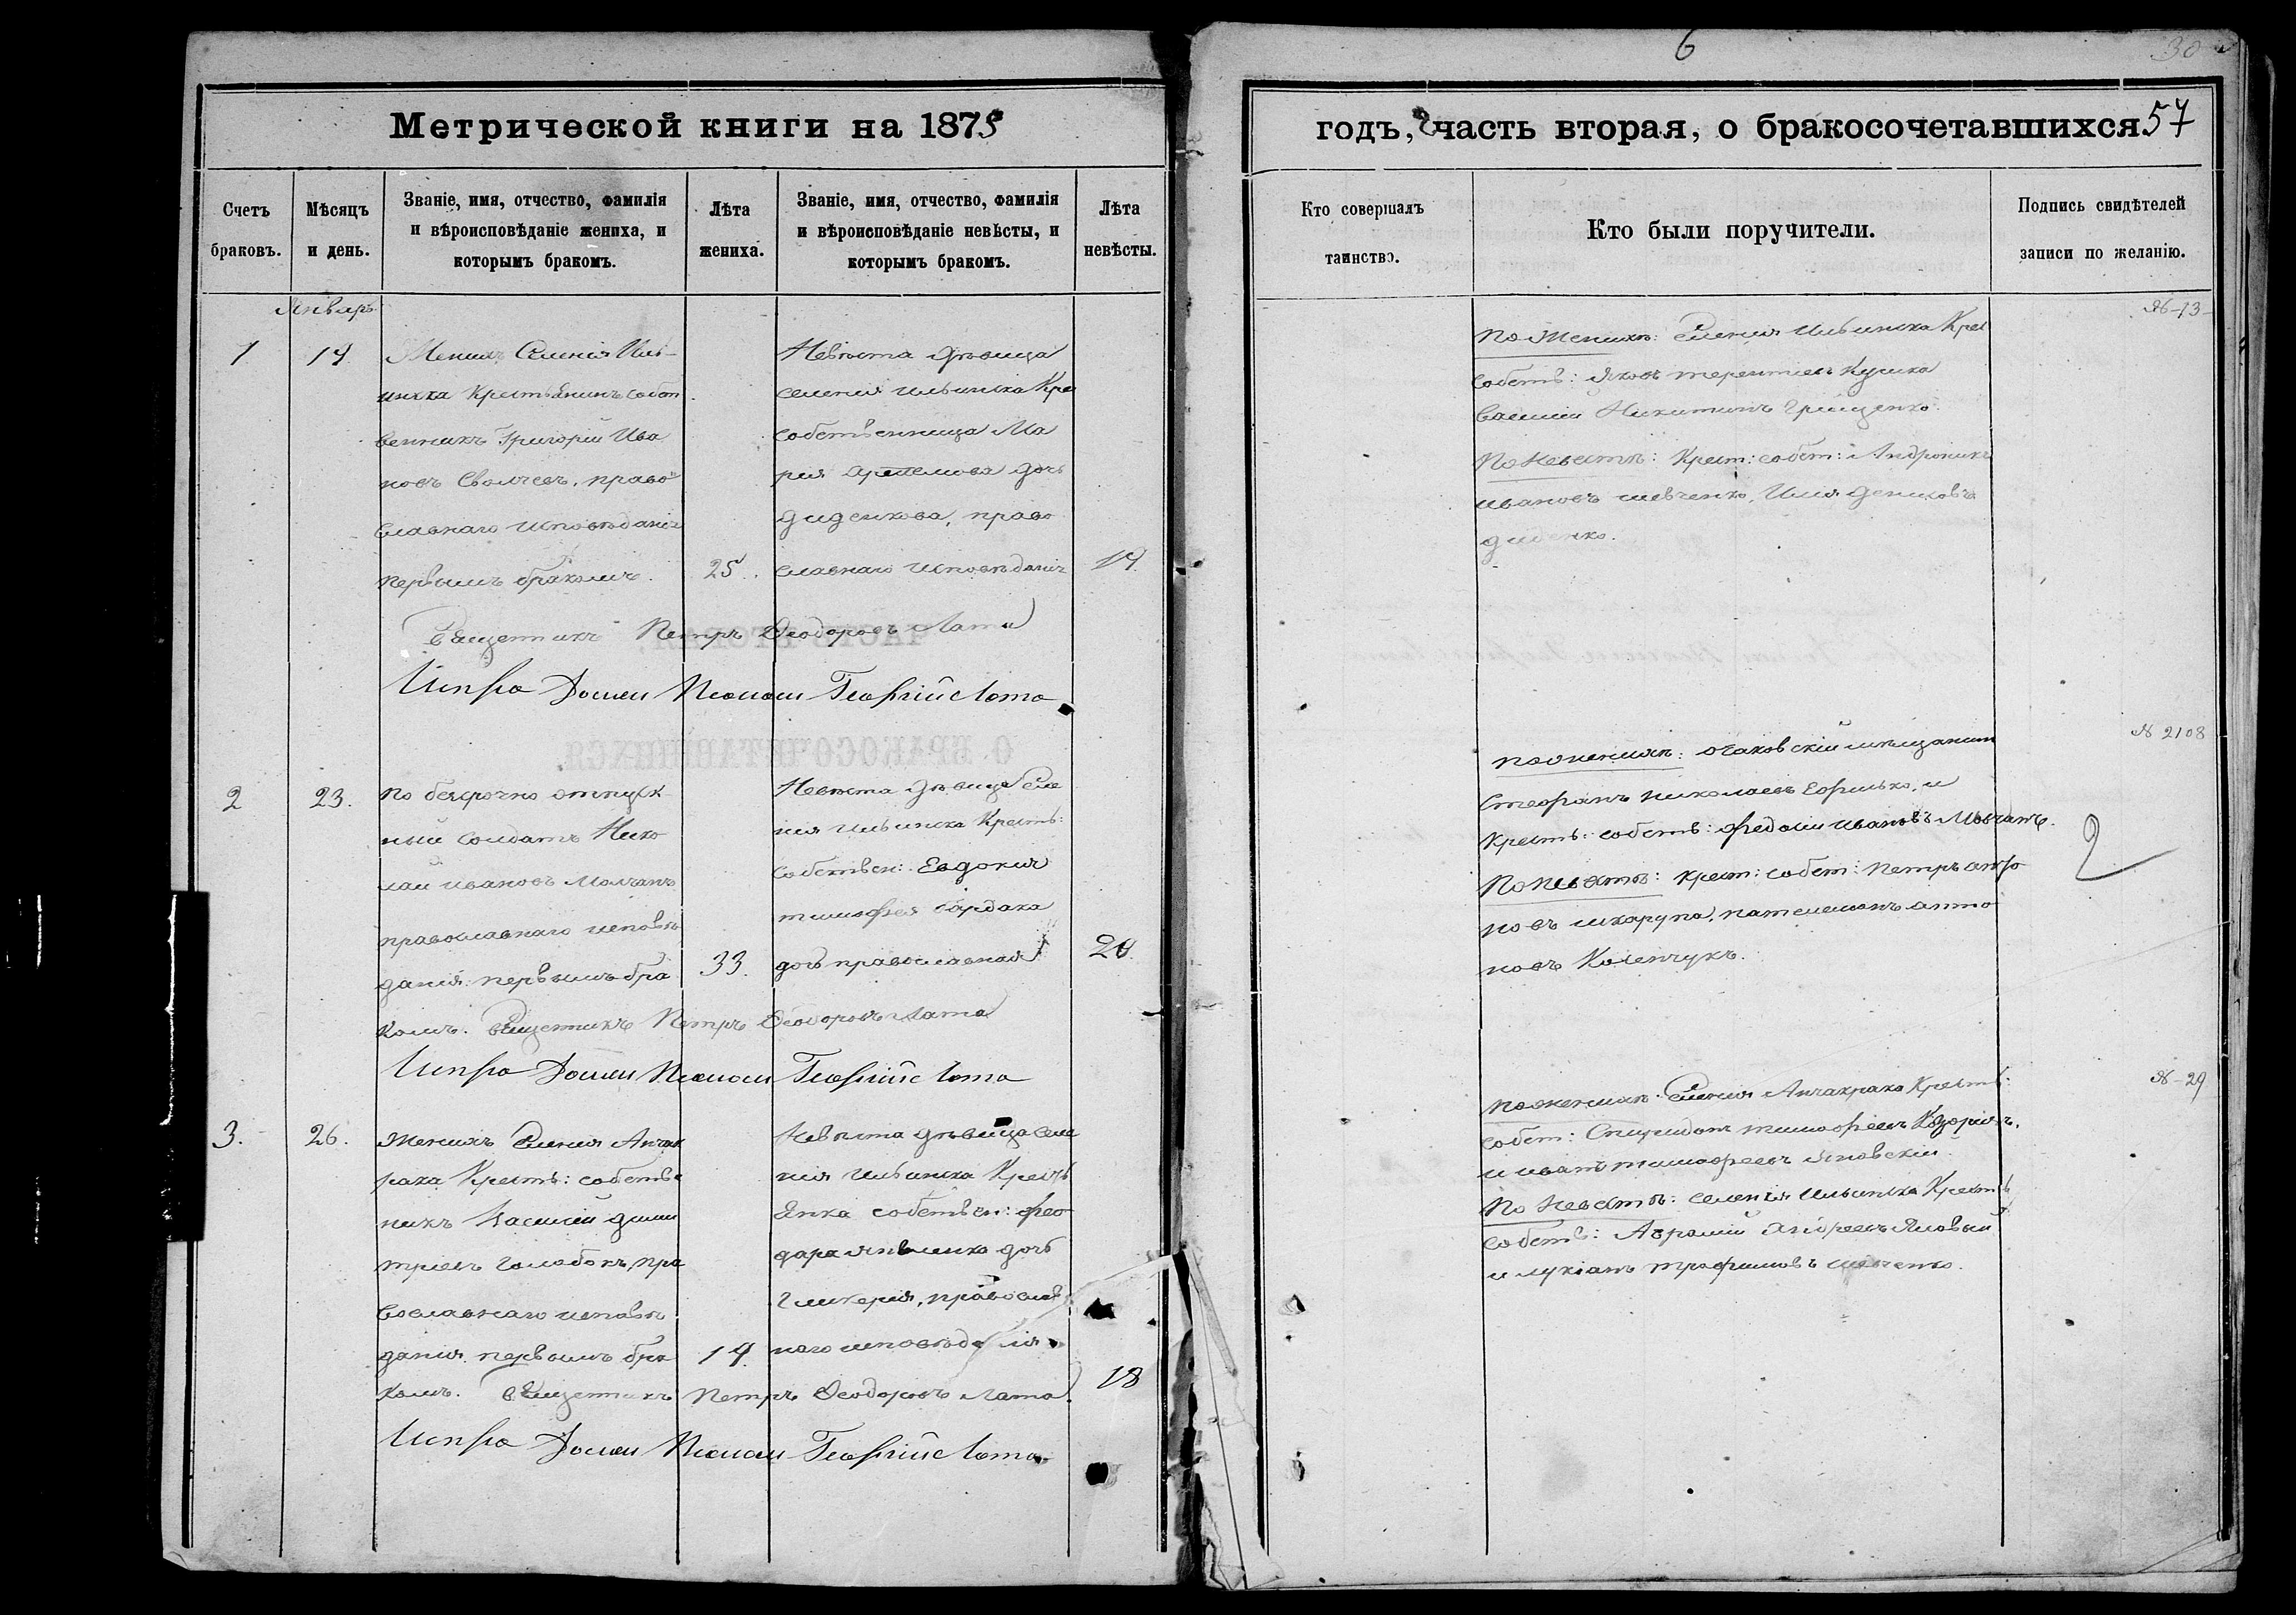 6
30
Метрической книги на 1875
годъ, часть вторая, о бракосочетавшихся 57
Счетъ браковъ.
Мѣсяцъ и день.
Званіе, имя, отчество, фамилія и вѣроисповѣданіе жениха, и которымъ бракомъ.
Лѣта жениха.
Званіе, имя, отчество, фамилія и вѣроисповѣданіе невѣсты, и которымъ бракомъ.
Лѣта невѣсты.
Кто совершалъ таинство.
Кто были поручители.
Подпись свидѣтелей записи по желанію.
Январь
1
19
Женихъ Селенія Иль-
инска Крестьянинъ собст
венникъ Григорій Ива
новъ право
славнаго исповѣданія
первымъ бракомъ.
25.
Невѣста дѣвица
селенія Ильинска Кре
собственница Ма
рія Артемова дочь
Диденкова, право
славнаго исповѣданія
19
Священникъ Петръ Ѳеодоровъ Лата
Георгій Лата
По Женихѣ: Селенія Ильинска Крес
собств: Яковъ Терентіевъ
Василій Никитинъ Грищенко.
По Невестѣ: Крест: собст: Андроникъ
Ивановъ Шевченко, Илія Денисовъ
Диденко.
№-13-
2
23.
по безсрочно отпуск
ный солдатъ Нико
лай Ивановъ Молчанъ
православнаго исповѣ
данія: первымъ бра
комъ.
33.
Невѣста дѣвица Селе
нія Ильинска Кресть:
собствен: Евдокия
Тимофея
дочь православная
20.
Священникъ Петръ Ѳеодоровъ Лата
Георгій Лата
по женихѣ: очаковскій мѣщанинъ
Стефанъ Николаевъ и
Кресть: собств: Федосій Ивановъ Молчанъ.
По Невестѣ: Крест: собст: Петръ
новъ Шкарупа, Антo
новъ
№ 2108
2
3.
26.
Женихъ Селенія Анчек
рака Кресть: собстве
никъ Василій Дими
тріевъ Голобокъ, пра
вославнаго исповѣ
данія первымъ бра
комъ.
19.
Невѣста дѣвица Селе
нія Ильинска Кресть
янка собствен: Фео
дора дочь
Гликерія, православ
наго исповѣданія
18
Священникъ Петръ Ѳеодоровъ Лата
Георгій Лата
по женихѣ: Селенія Анчакрака Кресть:
собст: Спиридонъ Тимофеевъ
и Иванъ Тимофеевъ Яновскій.
По Невестѣ: Селенія Ильинска Кресть
собств: Авраамій Андреевъ Яловый
и Лукіанъ Трофимовъ Шевченко.
№-29